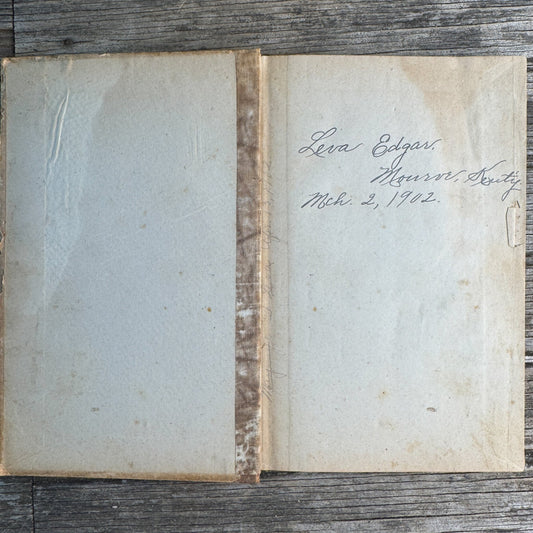 Leva Edgar.
Monroe, Kenty.
Mch. 2, 1902.